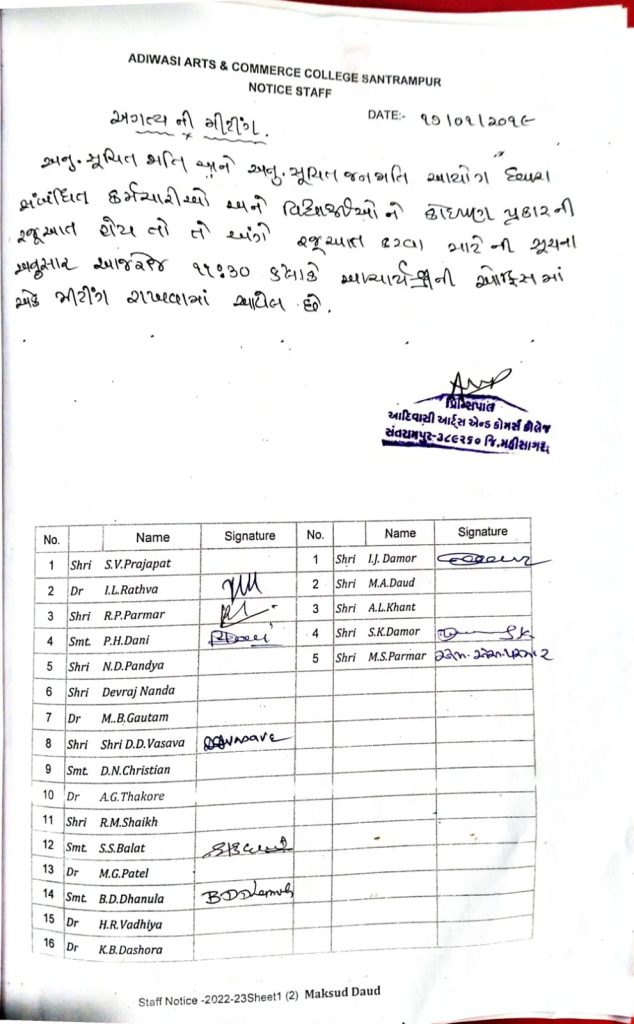 ADIWASI ARTS & COMMERCE COLLEGE SANTRAMPUR
NOTICE STAFF
DATE:-
અગત્ય ની મીટીંગ.
અનુ. સૂચિત જાતિ અને અનુ. સૂચિત જનજાતિ આયોગ દ્વારા
સંબંધિત કર્મચારીઓ અને વિદ્યાર્થીઓ નો કોઇપણ પ્રકારની
રજૂઆત હોય તો તે અંગે રજૂઆત કરવા માટે ની સૂચના
અનુસાર આજરોજ ૧૧:૩૦ કલાકે આચાર્યશ્રીની ઓફિસ માં
એક મીટીંગ રાખવામાં આવેલ છે.
પ્રિન્સિપાલ
આદિવાસી આર્ટ્સ એન્ડ કોમર્સ કોલેજ
સંતરામપુર-૩૮૯૨૬૦ જિ.મહીસાગર
No. Name Signature No. Name Signature
1 Shri S.V.Prajapat 1 Shri I.J. Damor
2 Dr I.L.Rathva 2 Shri M.A.Daud
3 Shri R.P.Parmar 3 Shri A.L.Khant
4 Smt. P.H.Dani 4 Shri S.K.Damor
5 Shri N.D.Pandya 5 Shri M.S.Parmar
6 Shri Devraj Nanda
7 Dr M..B.Gautam
8 Shri Shri D.D.Vasava DDVasava
9 Smt. D.N.Christian
10 Dr A.G.Thakore
11 Shri R.M.Shaikh
12 Smt. S.S.Balat
13 Dr M.G.Patel
14 Smt. B.D.Dhanula
15 Dr H.R.Vadhiya
16 Dr K.B.Dashora
Staff Notice -2022-23Sheet1 (2) Maksud Daud